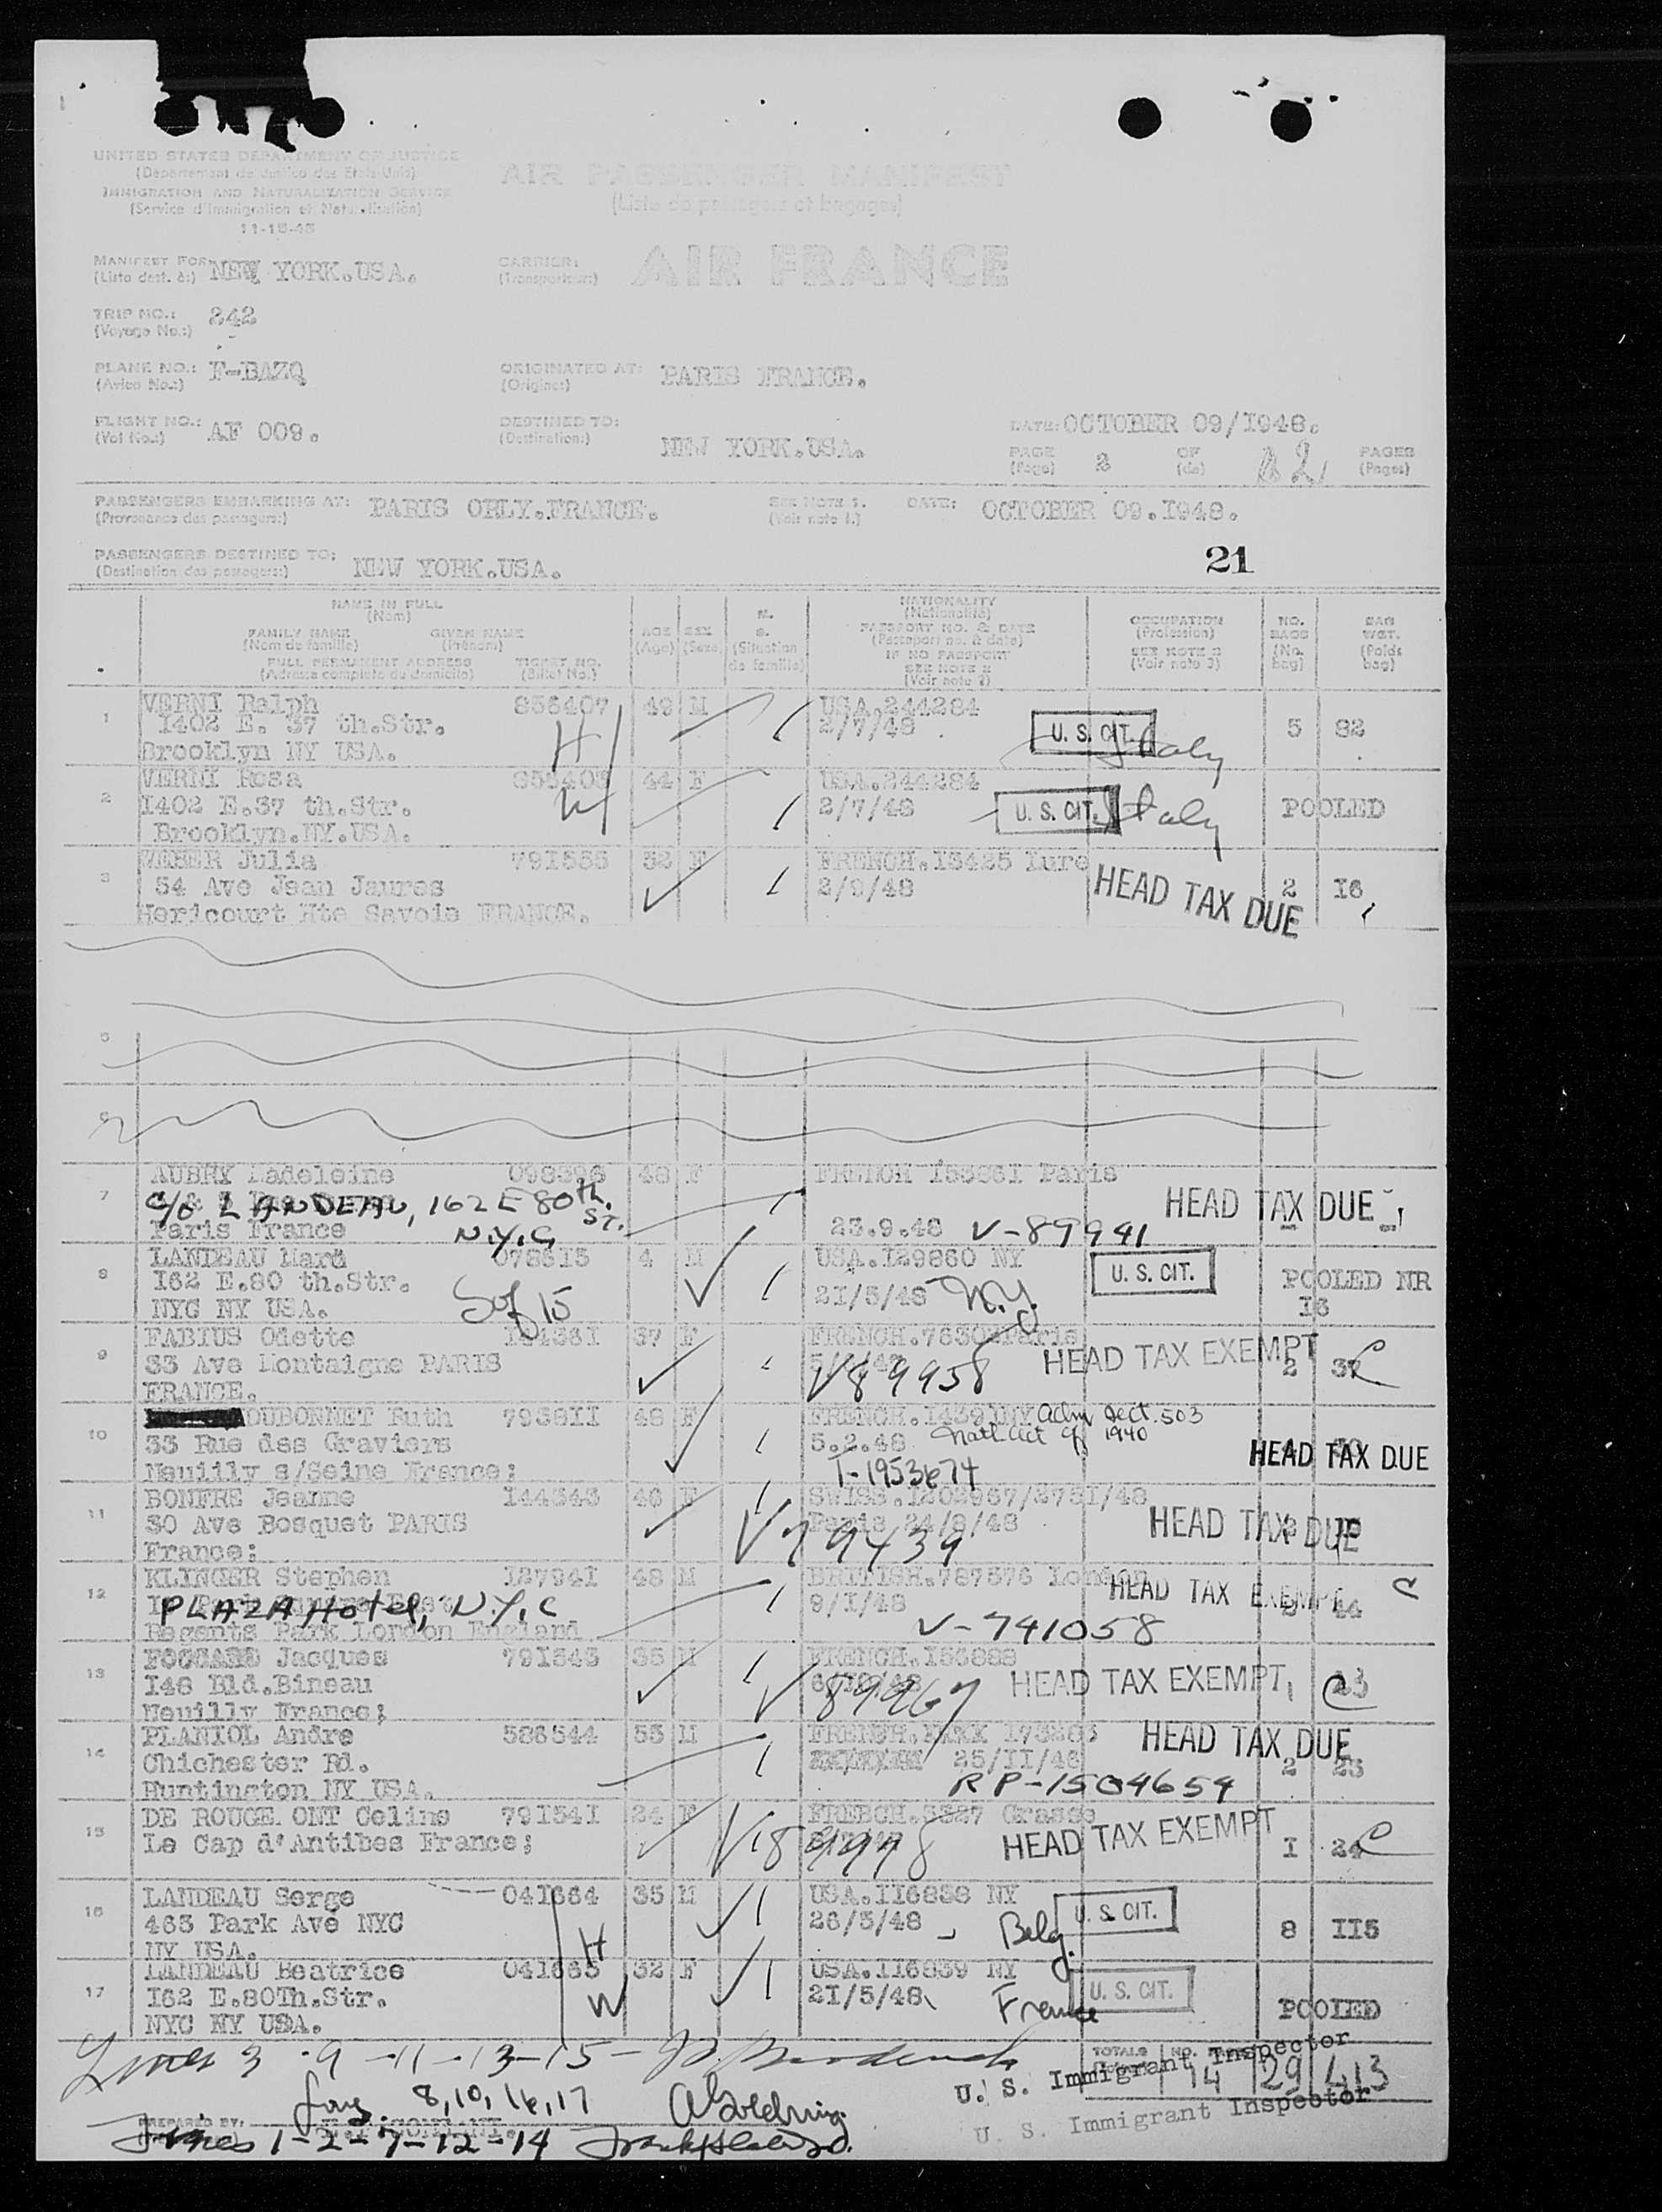 UNITED STATES DEPARTMENT OF JUSTICE
(Département de Justice des Etats-Unis)
IMMIGRATION AND NATURALIZATION SERVICE
(Service d'Immigration et Naturalisation)
11-15-45
AIR PASSENGER MANIFEST
(Liste de passagers et bagages)
MANIFEST FOR: NEW YORK.USA.
(Liste dest. à:)
CARRIER: AIR FRANCE
(Transporteur:)
TRIP NO.: 242
(Voyage No.:)
PLANE NO.: F-BAZQ
(Avion No.:)
ORIGINATED AT: PARIS FRANCE.
(Origine:)
FLIGHT NO.: AF 009.
(Vol No.:)
DESTINED TO: NEW YORK.USA.
(Destination:)
DATE: OCTOBER 09/I948.
PAGE 2 OF 2 PAGES
(Page) (de) (Pages)
PASSENGERS EMBARKING AT: PARIS ORLY.FRANCE. SEE NOTE 1. DATE: OCTOBER 09.I948.
(Provenance des passagers:) (Voir note 1.)
PASSENGERS DESTINED TO: NEW YORK.USA. 21
(Destination des passagers:)
NAME IN FULL
(Nom)
FAMILY NAME GIVEN NAME
(Nom de famille) (Prénom)
FULL PERMANENT ADDRESS TICKET NO.
(Adresse complète du domicile) (Billet No.)
AGE
(Age)
SEX
(Sexe)
M.
S.
(Situation
de famille)
NATIONALITY
(Nationalité)
PASSPORT NO. & DATE
(Passeport no. & date)
IF NO PASSPORT
SEE NOTE 2
(Voir note 2)
OCCUPATION
(Profession)
SEE NOTE 3
(Voir note 3)
NO.
BAGS
(No.
bag)
BAG
WGT.
(Poids
bag)
1 VERNI Ralph 856407 49 M USA.244284
I402 E. 37 th.Str. H 2/7/48 U. S. CIT. Italy 5 92
Brooklyn NY USA.
2 VERNI Rosa 44 F USA.244284
I402 E.37 th.Str. W 2/7/48 U. S. CIT. Italy POOLED
Brooklyn.NY.USA.
3 WEBER Julia 79I565 52 F FRENCH.I5425 Lure
54 Ave Jean Jaures 2/9/48 HEAD TAX DUE 2 I6
Hericourt Hte Savoie FRANCE.
5
6
7 AUBRY Madeleine 48 F FRENCH I5326I Paris
C/O LANDEAU, 162 E 80th ST. HEAD TAX DUE
Paris France N.Y.C 23.9.48 V-89941
8 LANDEAU Marc 078615 4 M USA.I29860 NY
I62 E.80 th.Str. U. S. CIT. POOLED NR
NYC NY USA. S of 15 2I/5/48 N.Y. I6
9 FABIUS Odette 37 F FRENCH. Paris
33 Ave Montaigne PARIS V89958 HEAD TAX EXEMPT 2 C
FRANCE.
10 DUBONNET Ruth 7938II 48 F FRENCH. NY Adm Sect. 503
33 Rue des Graviers 5.2.48 Natl Act of 1940 HEAD TAX DUE
Neuilly s/Seine France; T-1953674
11 BONFRE Jeanne I44343 46 F SWISS.I202967/2731/48
30 Ave Bosquet PARIS Paris 24/8/48 HEAD TAX DUE
France;
12 KLINGER Stephen I2794I 48 M BRITISH.787576 London
PLAZA Hotel, N.Y.C 9/I/48 HEAD TAX EXEMPT 44 C
Regents Park London England V-741058
13 FOCCARD Jacques 79I543 35 M FRENCH.I56888
I48 Bld.Bineau V89967 HEAD TAX EXEMPT C
Neuilly France;
14 PLANIOL Andre 586544 55 M FRENCH. HEAD TAX DUE
Chichester Rd. 25/II/48 2 23
Huntington NY USA. RP-1504654
15 DE ROUGE ONT Celine 79I54I 24 F FRENCH.5327 Grasse
Le Cap d'Antibes France; HEAD TAX EXEMPT I 24 C
16 LANDEAU Serge 04I664 35 M USA.II6838 NY
465 Park Ave NYC H 26/5/48 Belg. U. S. CIT. 8 II5
NY USA.
17 LANDEAU Beatrice 04I665 32 F USA.II6839 NY
I62 E.80Th.Str. W 2I/5/48 France U. S. CIT. POOLED
NYC NY USA.
Lines 3-9-11-13-15- U. S. Immigrant Inspector
TOTALS 14 29 413
8,10,16,17
PREPARED BY: U. S. Immigrant Inspector
Lines 1-2-7-12-14